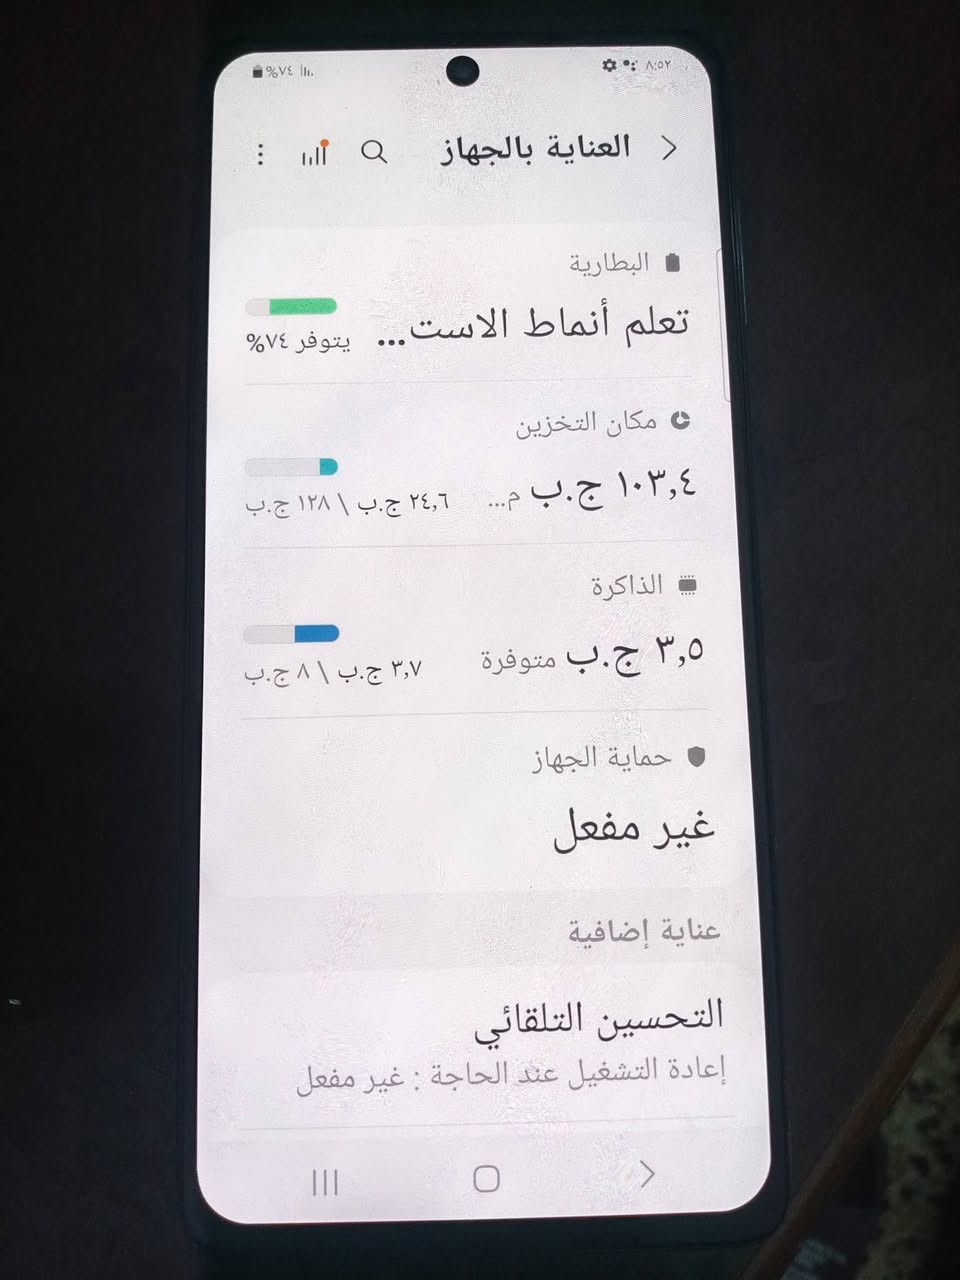 ٨:٥٢
٧٤%
العناية بالجهاز
البطارية
تعلم أنماط الاست...
يتوفر ٧٤%
مكان التخزين
١٠٣,٤ ج.ب م...
٢٤,٦ ج.ب \ ١٢٨ ج.ب
الذاكرة
٣,٥ ج.ب متوفرة
٣,٧ ج.ب \ ٨ ج.ب
حماية الجهاز
غير مفعل
عناية إضافية
التحسين التلقائي
إعادة التشغيل عند الحاجة : غير مفعل